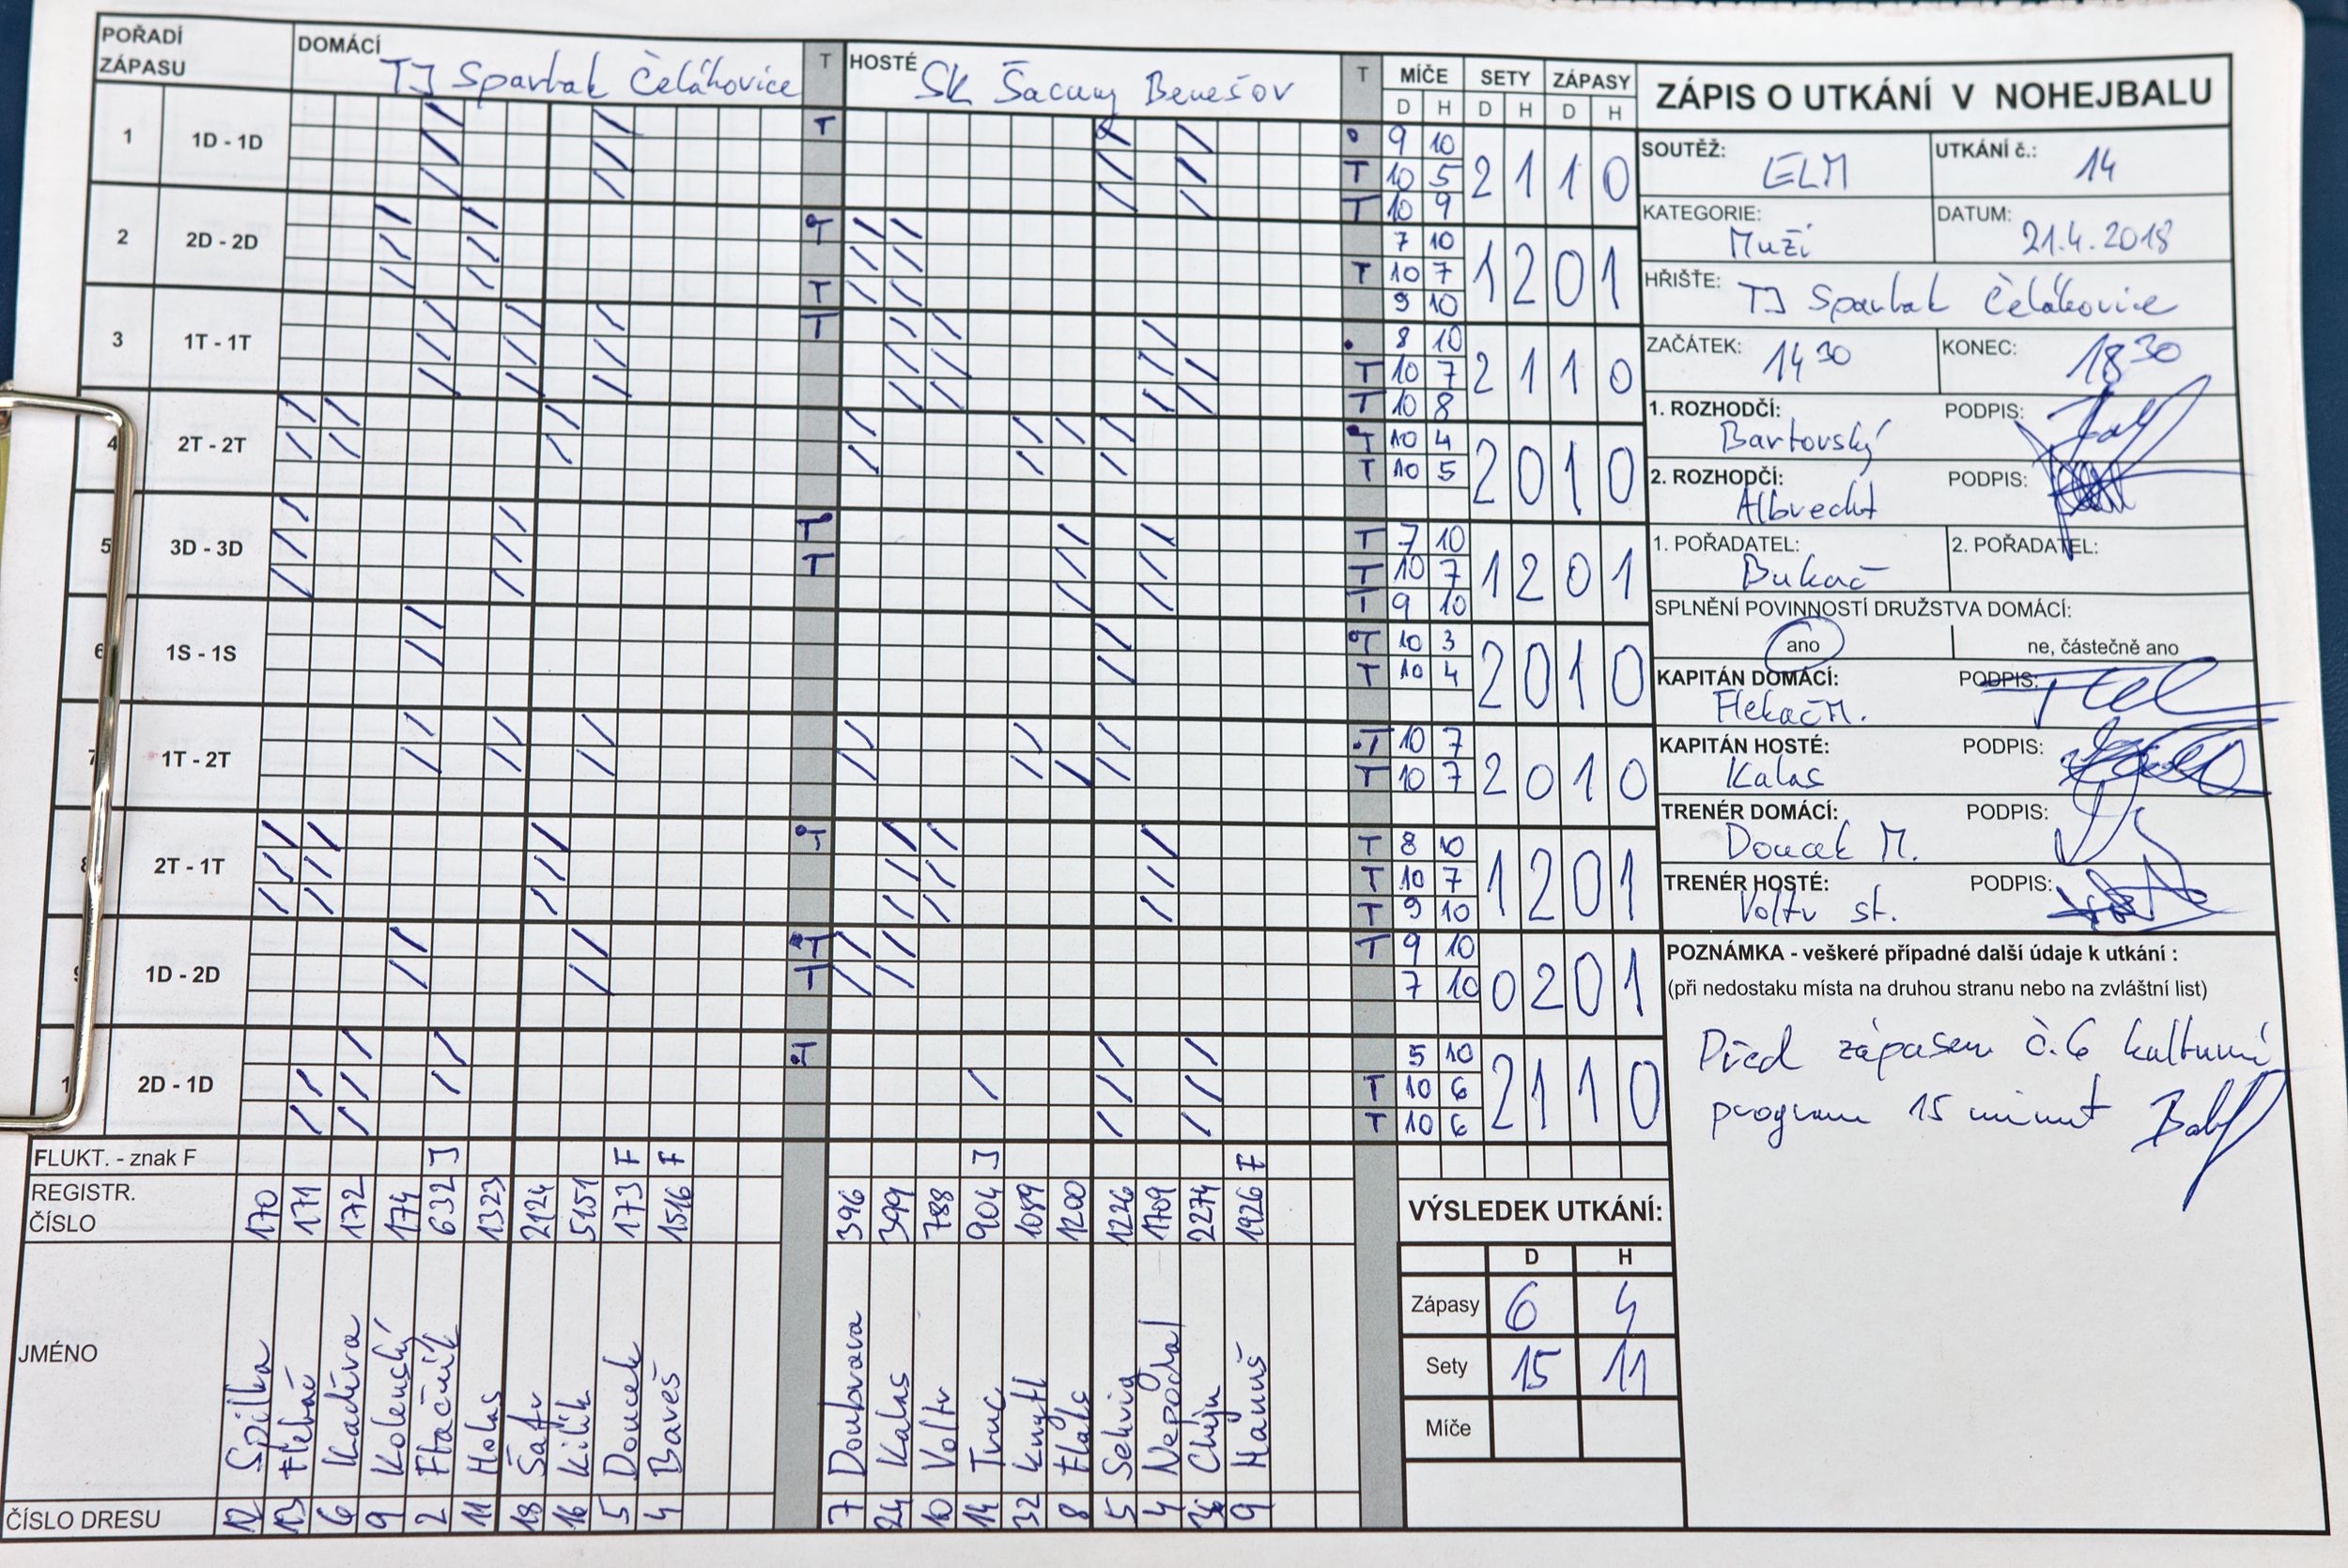 POŘADÍ ZÁPASU
DOMÁCÍ TJ Spartak Čelákovice
T
HOSTÉ SK Šacung Benešov
T
MÍČE SETY ZÁPASY
D H D H D H
1 1D - 1D T 2 1 1 0
9 10
T 10 5
T 10 9
2 2D - 2D T T 1 2 0 1
7 10
T 10 7
9 10
3 1T - 1T T 2 1 1 0
8 10
T 10 7
T 10 8
4 2T - 2T 2 0 1 0
T 10 4
T 10 5
5 3D - 3D T T 1 2 0 1
T 7 10
T 10 7
T 9 10
6 1S - 1S 2 0 1 0
T 10 3
T 10 4
7 1T - 2T 2 0 1 0
T 10 7
T 10 7
8 2T - 1T T 1 2 0 1
T 8 10
T 10 7
T 9 10
9 1D - 2D T T 0 2 0 1
T 9 10
7 10
1 2D - 1D T 2 1 1 0
5 10
T 10 6
T 10 6
FLUKT. - znak F J F F J F
REGISTR. ČÍSLO
170 171 172 174 632 1323 2124 5151 173 1516
396 399 788 904 1089 1200 1226 1709 2274 1926
JMÉNO
Spilka Flekač Kadéra Kolenský Flačník Holas Šafr Kilík Doucek Bareš
Doubrava Kalas Voltr Truc Knytl Flals Selvig Nepodal Chejn Hanuš
ČÍSLO DRESU
12 13 6 9 2 11 18 16 5 4
7 24 10 14 32 8 5 4 9
ZÁPIS O UTKÁNÍ V NOHEJBALU
SOUTĚŽ: ELM
UTKÁNÍ č.: 14
KATEGORIE: Muži
DATUM: 21.4.2018
HŘIŠTĚ: TJ Spartak Čelákovice
ZAČÁTEK: 14 30
KONEC: 18 30
1. ROZHODČÍ: Bartovský
PODPIS:
2. ROZHODČÍ: Albrecht
PODPIS:
1. POŘADATEL: Bukač
2. POŘADATEL:
SPLNĚNÍ POVINNOSTÍ DRUŽSTVA DOMÁCÍ:
ano
ne, částečně ano
KAPITÁN DOMÁCÍ: Flekač M.
PODPIS:
KAPITÁN HOSTÉ: Kalas
PODPIS:
TRENÉR DOMÁCÍ: Doucek M.
PODPIS:
TRENÉR HOSTÉ: Voltr st.
PODPIS:
POZNÁMKA - veškeré případné další údaje k utkání :
(při nedostaku místa na druhou stranu nebo na zvláštní list)
Před zápasem č.6 kulturní
program 15 minut
VÝSLEDEK UTKÁNÍ:
D H
Zápasy 6 4
Sety 15 11
Míče